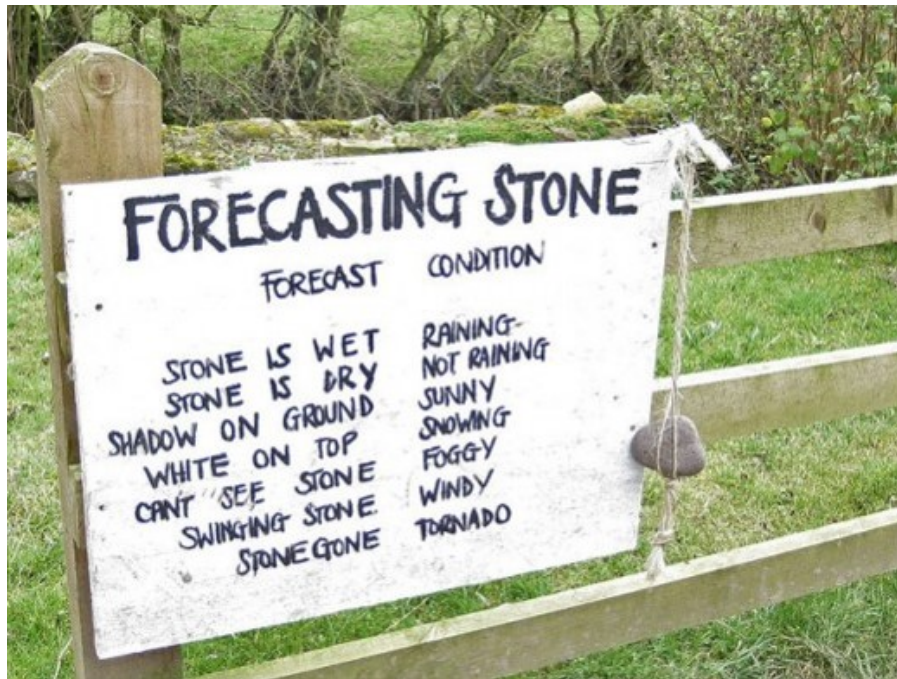 FORECASTING STONE
FORECAST CONDITION
STONE IS WET RAINING-
STONE IS DRY NOT RAINING
SHADOW ON GROUND SUNNY
WHITE ON TOP SNOWING
CAN'T SEE STONE FOGGY
SWINGING STONE WINDY
STONE GONE TORNADO